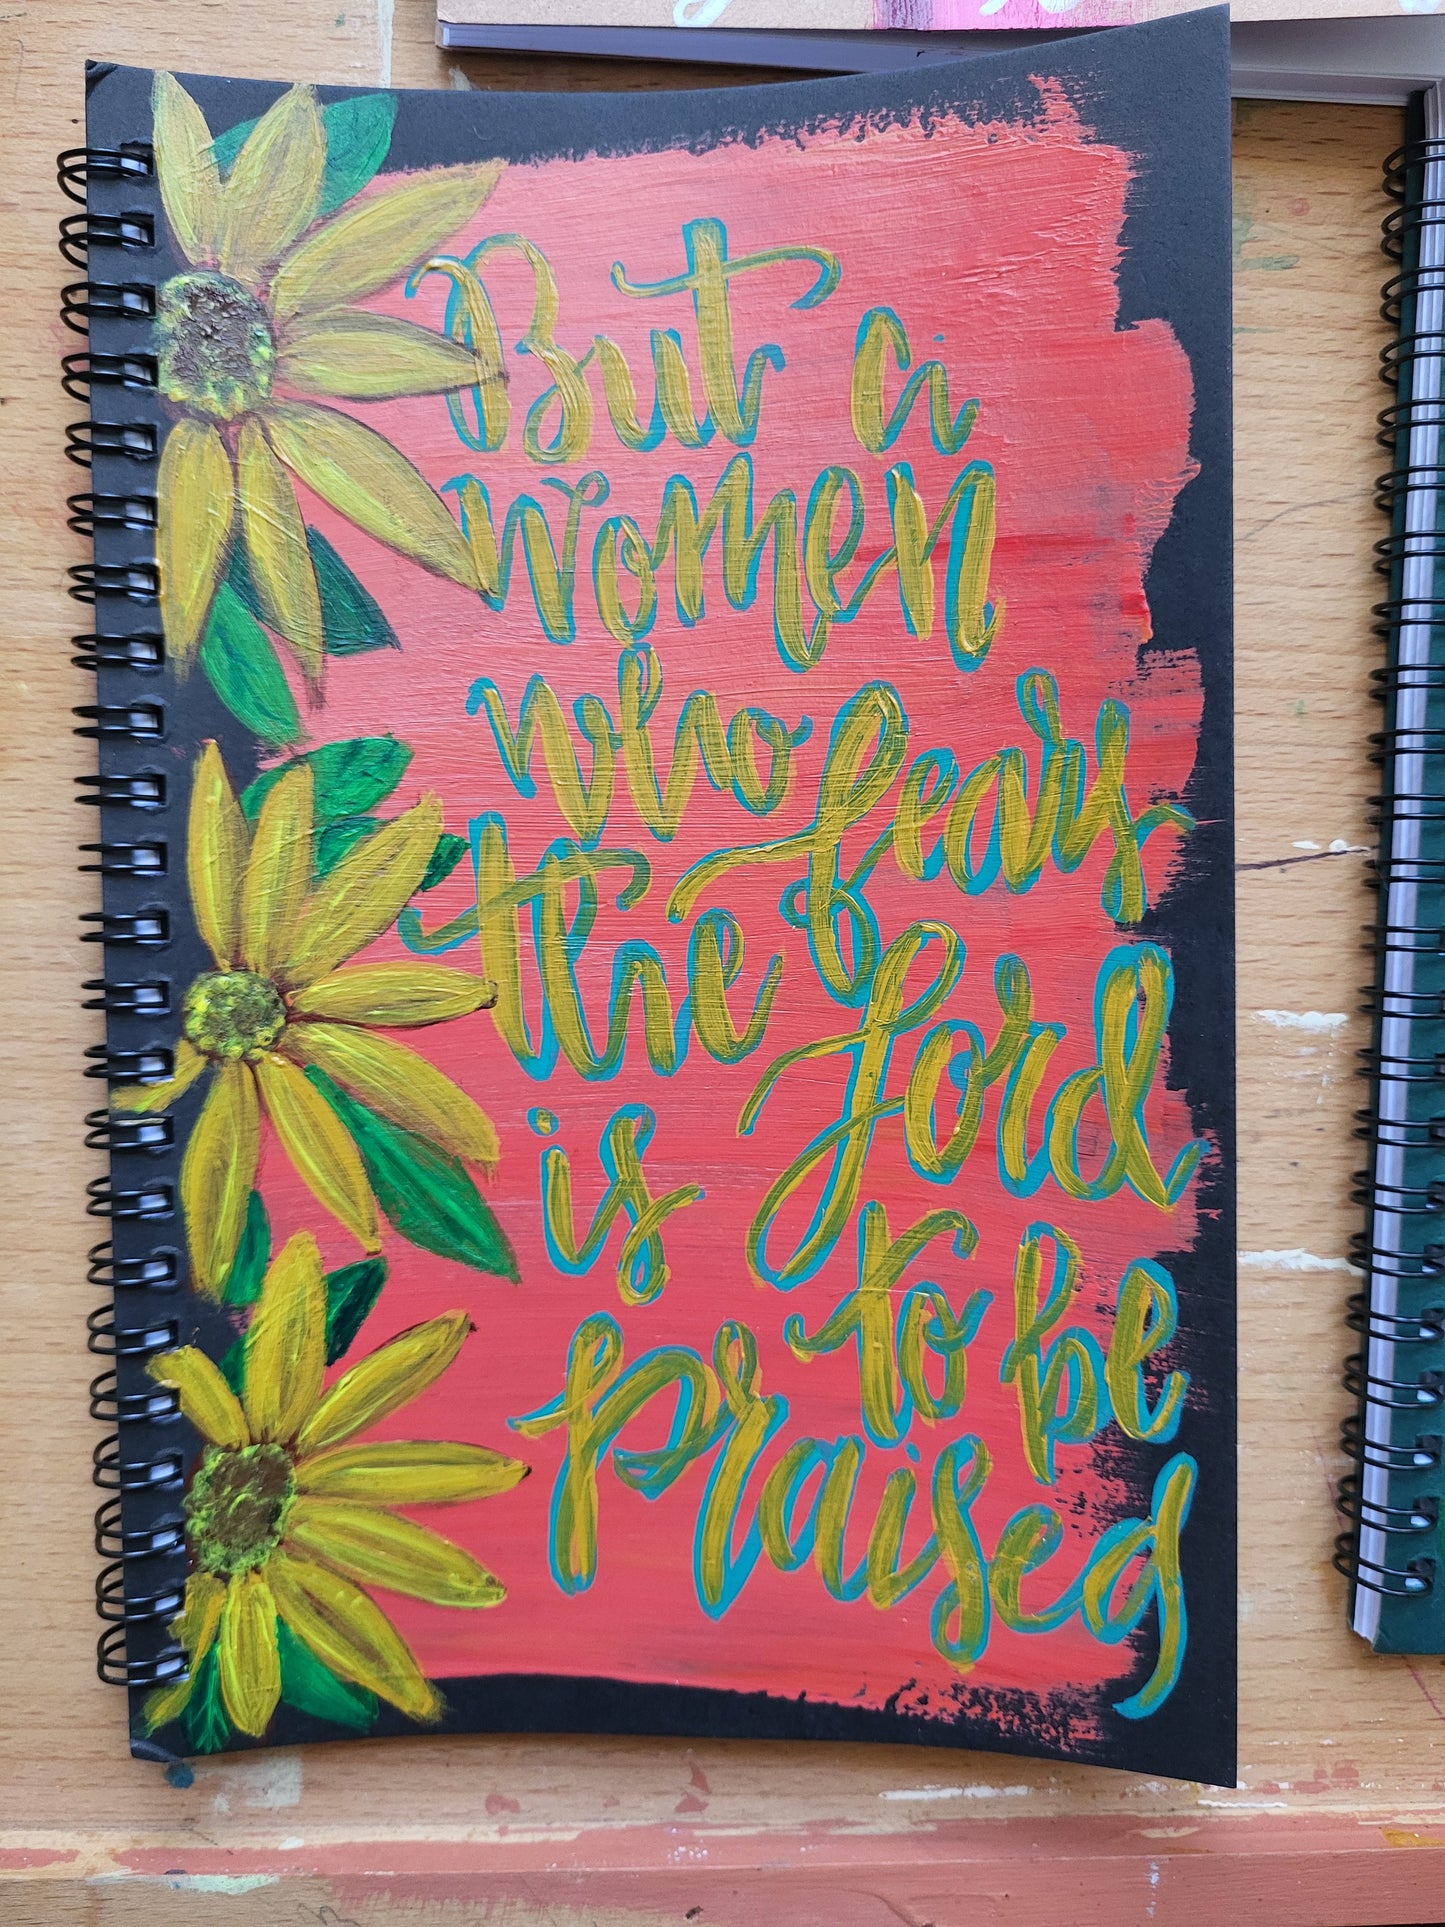 But a
women
who fears
the Lord
is to be
praised